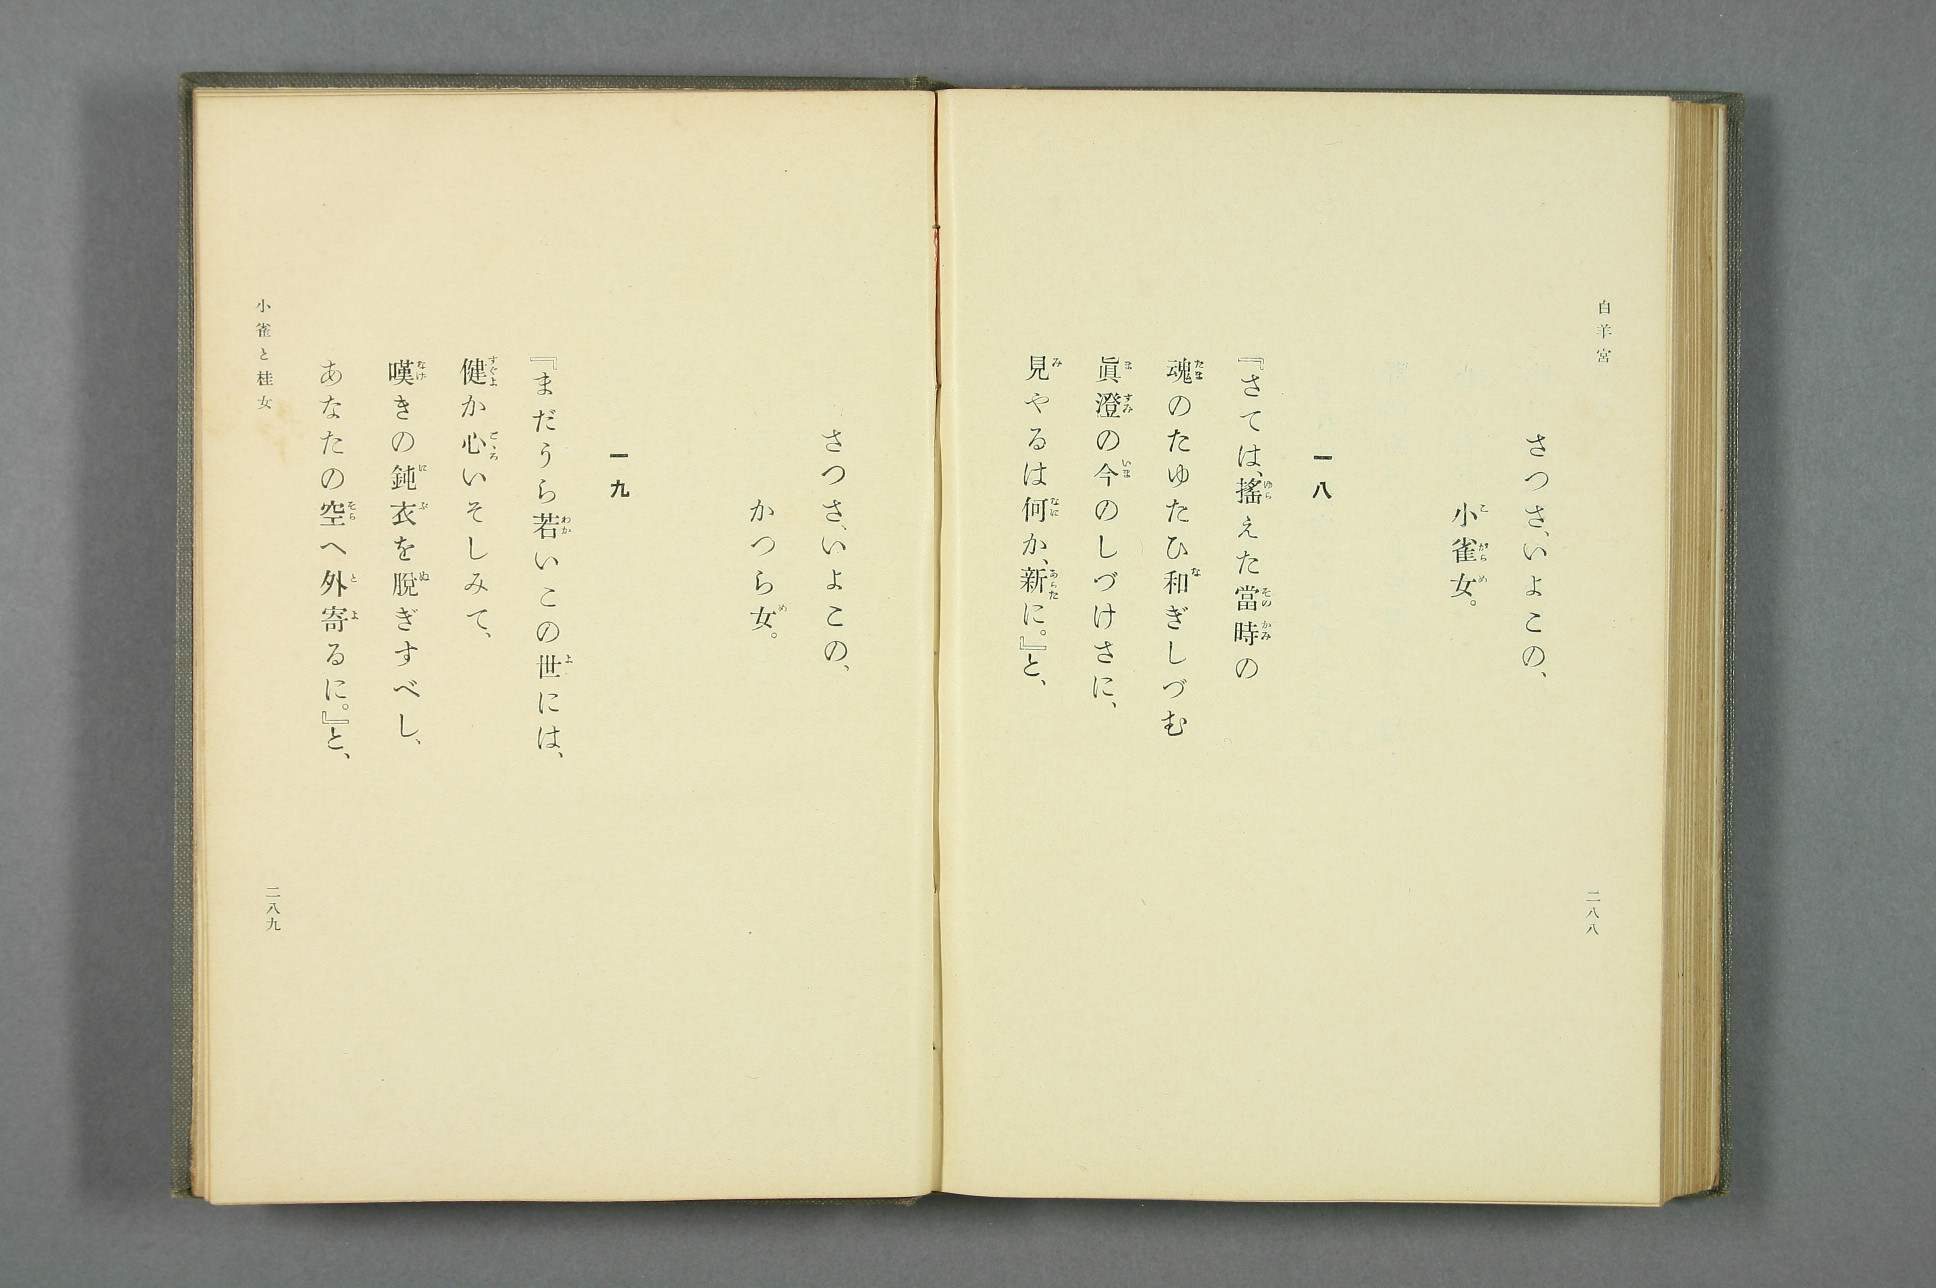 白羊宮
さつさ、いよこの、
小雀女。
一八
『さては、搖えた當時の
魂のたゆたひ和ぎしづむ
眞澄の今のしづけさに、
見やるは何か、新に。』と、
二八八
さつさ、いよこの、
かつら女。
一九
『まだうら若いこの世には、
健か心いそしみて、
嘆きの鈍衣を脱ぎすべし、
あなたの空へ外寄るに。』と、
小雀と桂女
二八九